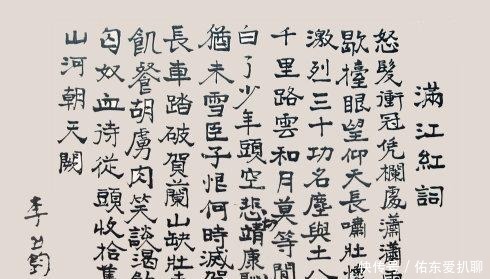 滿江紅詞
怒髮衝冠凭欄處瀟瀟
歇擡眼望仰天長嘯壯
激烈三十功名塵與土八
千里路雲和月莫等閒
白了少年頭空悲切靖康
猶未雪臣子恨何時滅駕
長車踏破賀蘭山缺壯
飢餐胡虜肉笑談渴飲
匈奴血待從頭收拾舊
山河朝天闕
李
快传号 / 佑东爱扒聊